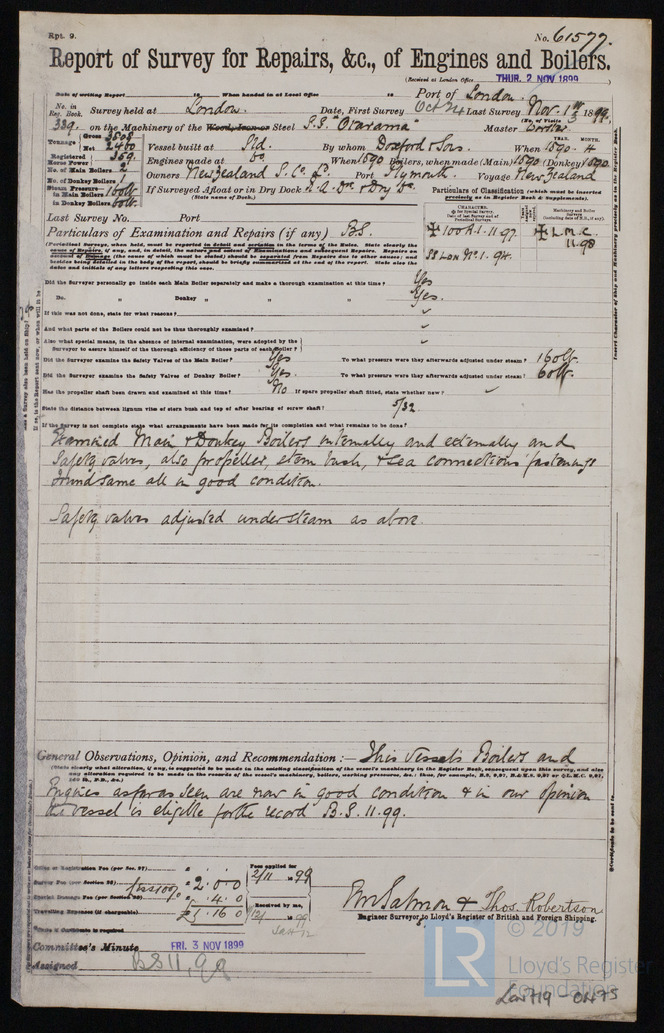 Rpt. 9.
No. 61577.
Report of Survey for Repairs, &c., of Engines and Boilers.
(Received at London Office THUR. 2 NOV 1899
Date of writing Report 18 When handed in at Local Office 18 Port of London.
No. in Reg. Book. Survey held at London. Date, First Survey Oct 24 Last Survey Nov. 1st 1899.
(No. of Visits 3
339. on the Machinery of the Wood, Iron or Steel S.S. "Otarama" Master
Tonnage Gross 3808 Net 2460 Vessel built at Sld. By whom Doxford & Sons. When 1890. YEAR. MONTH. 4
Registered Horse Power 359. Engines made at Do. When 1890 Boilers, when made (Main) 1890 (Donkey) 1890.
No. of Main Boilers 2 Owners New Zealand S. Co. Ld. Port Plymouth. Voyage New Zealand
No. of Donkey Boilers 1
Steam Pressure in Main Boilers 160lb. If Surveyed Afloat or in Dry Dock
in Donkey Boilers 60lb. (State name of Dock.)
Particulars of Classification (which must be inserted precisely as in Register Book & Supplements).
Last Survey No. Port
Particulars of Examination and Repairs (if any) B.S.
100 A.1. 11.97.
L.M.C. 11.98
Did the Surveyor personally go inside each Main Boiler separately and make a thorough examination at this time? Yes
Do. " Donkey " " " " Yes.
If this was not done, state for what reasons?
And what parts of the Boilers could not be thus thoroughly examined?
Also what special means, in the absence of internal examination, were adopted by the
Surveyor to assure himself of the thorough efficiency of those parts of each Boiler?
Did the Surveyor examine the Safety Valves of the Main Boiler? Yes To what pressure were they afterwards adjusted under steam? 160lb.
Did the Surveyor examine the Safety Valves of Donkey Boiler? Yes. To what pressure were they afterwards adjusted under steam? 60lb.
Has the propeller shaft been drawn and examined at this time? No If spare propeller shaft fitted, state whether new?
State the distance between lignum vitæ of stern bush and top of after bearing of screw shaft? 5/32
If the Survey is not complete state what arrangements have been made for its completion and what remains to be done?
Examined Main & Donkey Boilers internally and externally and
Safety valves, also propeller, stern bush, & sea connections fastenings
found same all in good condition.
Safety valves adjusted under steam as above.
General Observations, Opinion, and Recommendation:— This Vessel's Boilers and
Engines as far as seen are now in good condition & in our opinion
the vessel is eligible for the record B.S. 11.99.
Survey Fee (per Section 28) £ 2.0.0
Special Damage Fee (per Section 28) £ .4.0
Travelling Expenses (if chargeable) £ 1.16.0
Fees applied for 2/11 1899
Received by me, 1899
Wm Salmon & Thos. Robertson.
Engineer Surveyor to Lloyd's Register of British and Foreign Shipping.
Committee's Minute FRI. 3 NOV 1899
Assigned BS 11,99
© 2019
LR
Lloyd's Register
Foundation